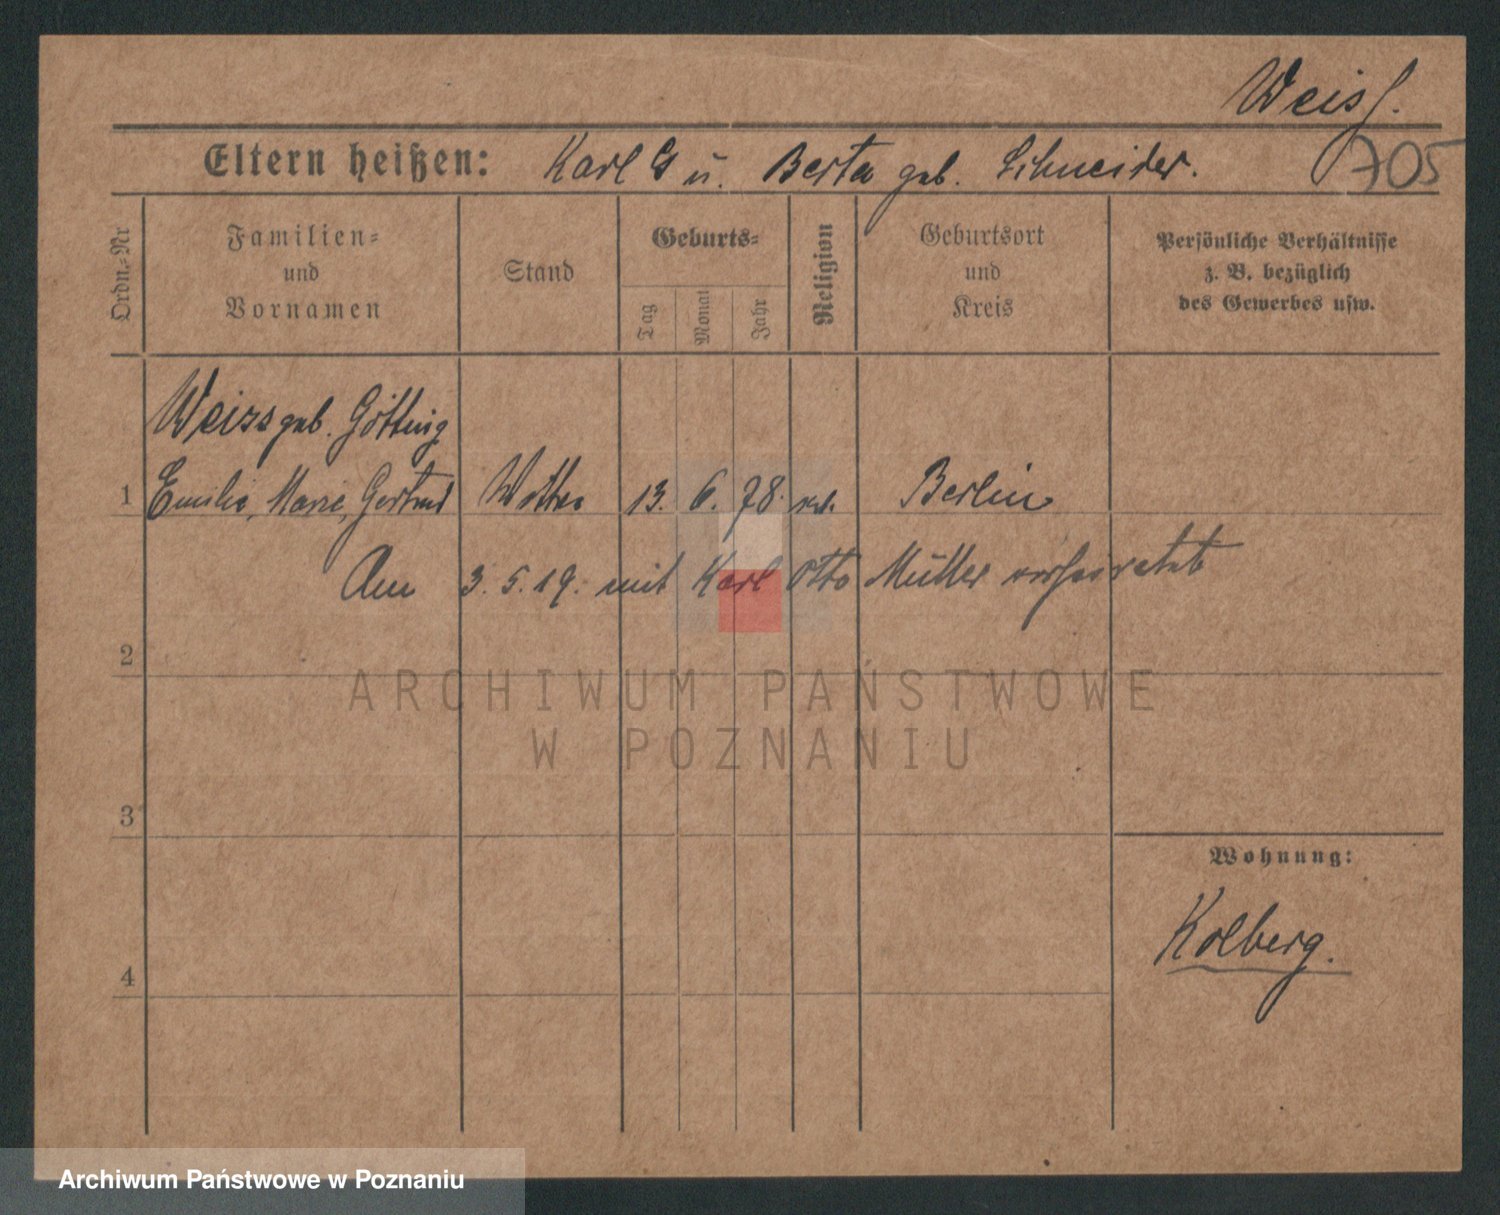 Weiss.
705
Eltern heißen: Karl G u. Berta geb. Schneider.
Ordn.-Nr
Familien-
und
Vornamen
Stand
Geburts-
Tag
Monat
Jahr
Religion
Geburtsort
und
Kreis
Persönliche Verhältnisse
z. B. bezüglich
des Gewerbes usw.
Weiss geb. Götting
1 Emilie, Marie, Gertrud 13. 6. 78. Berlin
Am 3. 5. 19. mit Karl Otto Müller verheiratet
2
ARCHIWUM PAŃSTWOWE
W POZNANIU
3
Wohnung:
Kolberg.
4
Archiwum Państwowe w Poznaniu